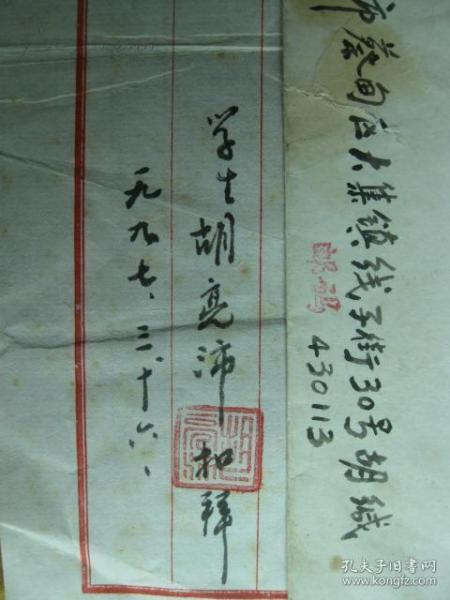 市蔡甸区大集镇线子街30号胡缄
邮码
430113
学生胡亮沛和拜
一九九七、三、十六、
孔夫子旧书网
www.kongfz.com